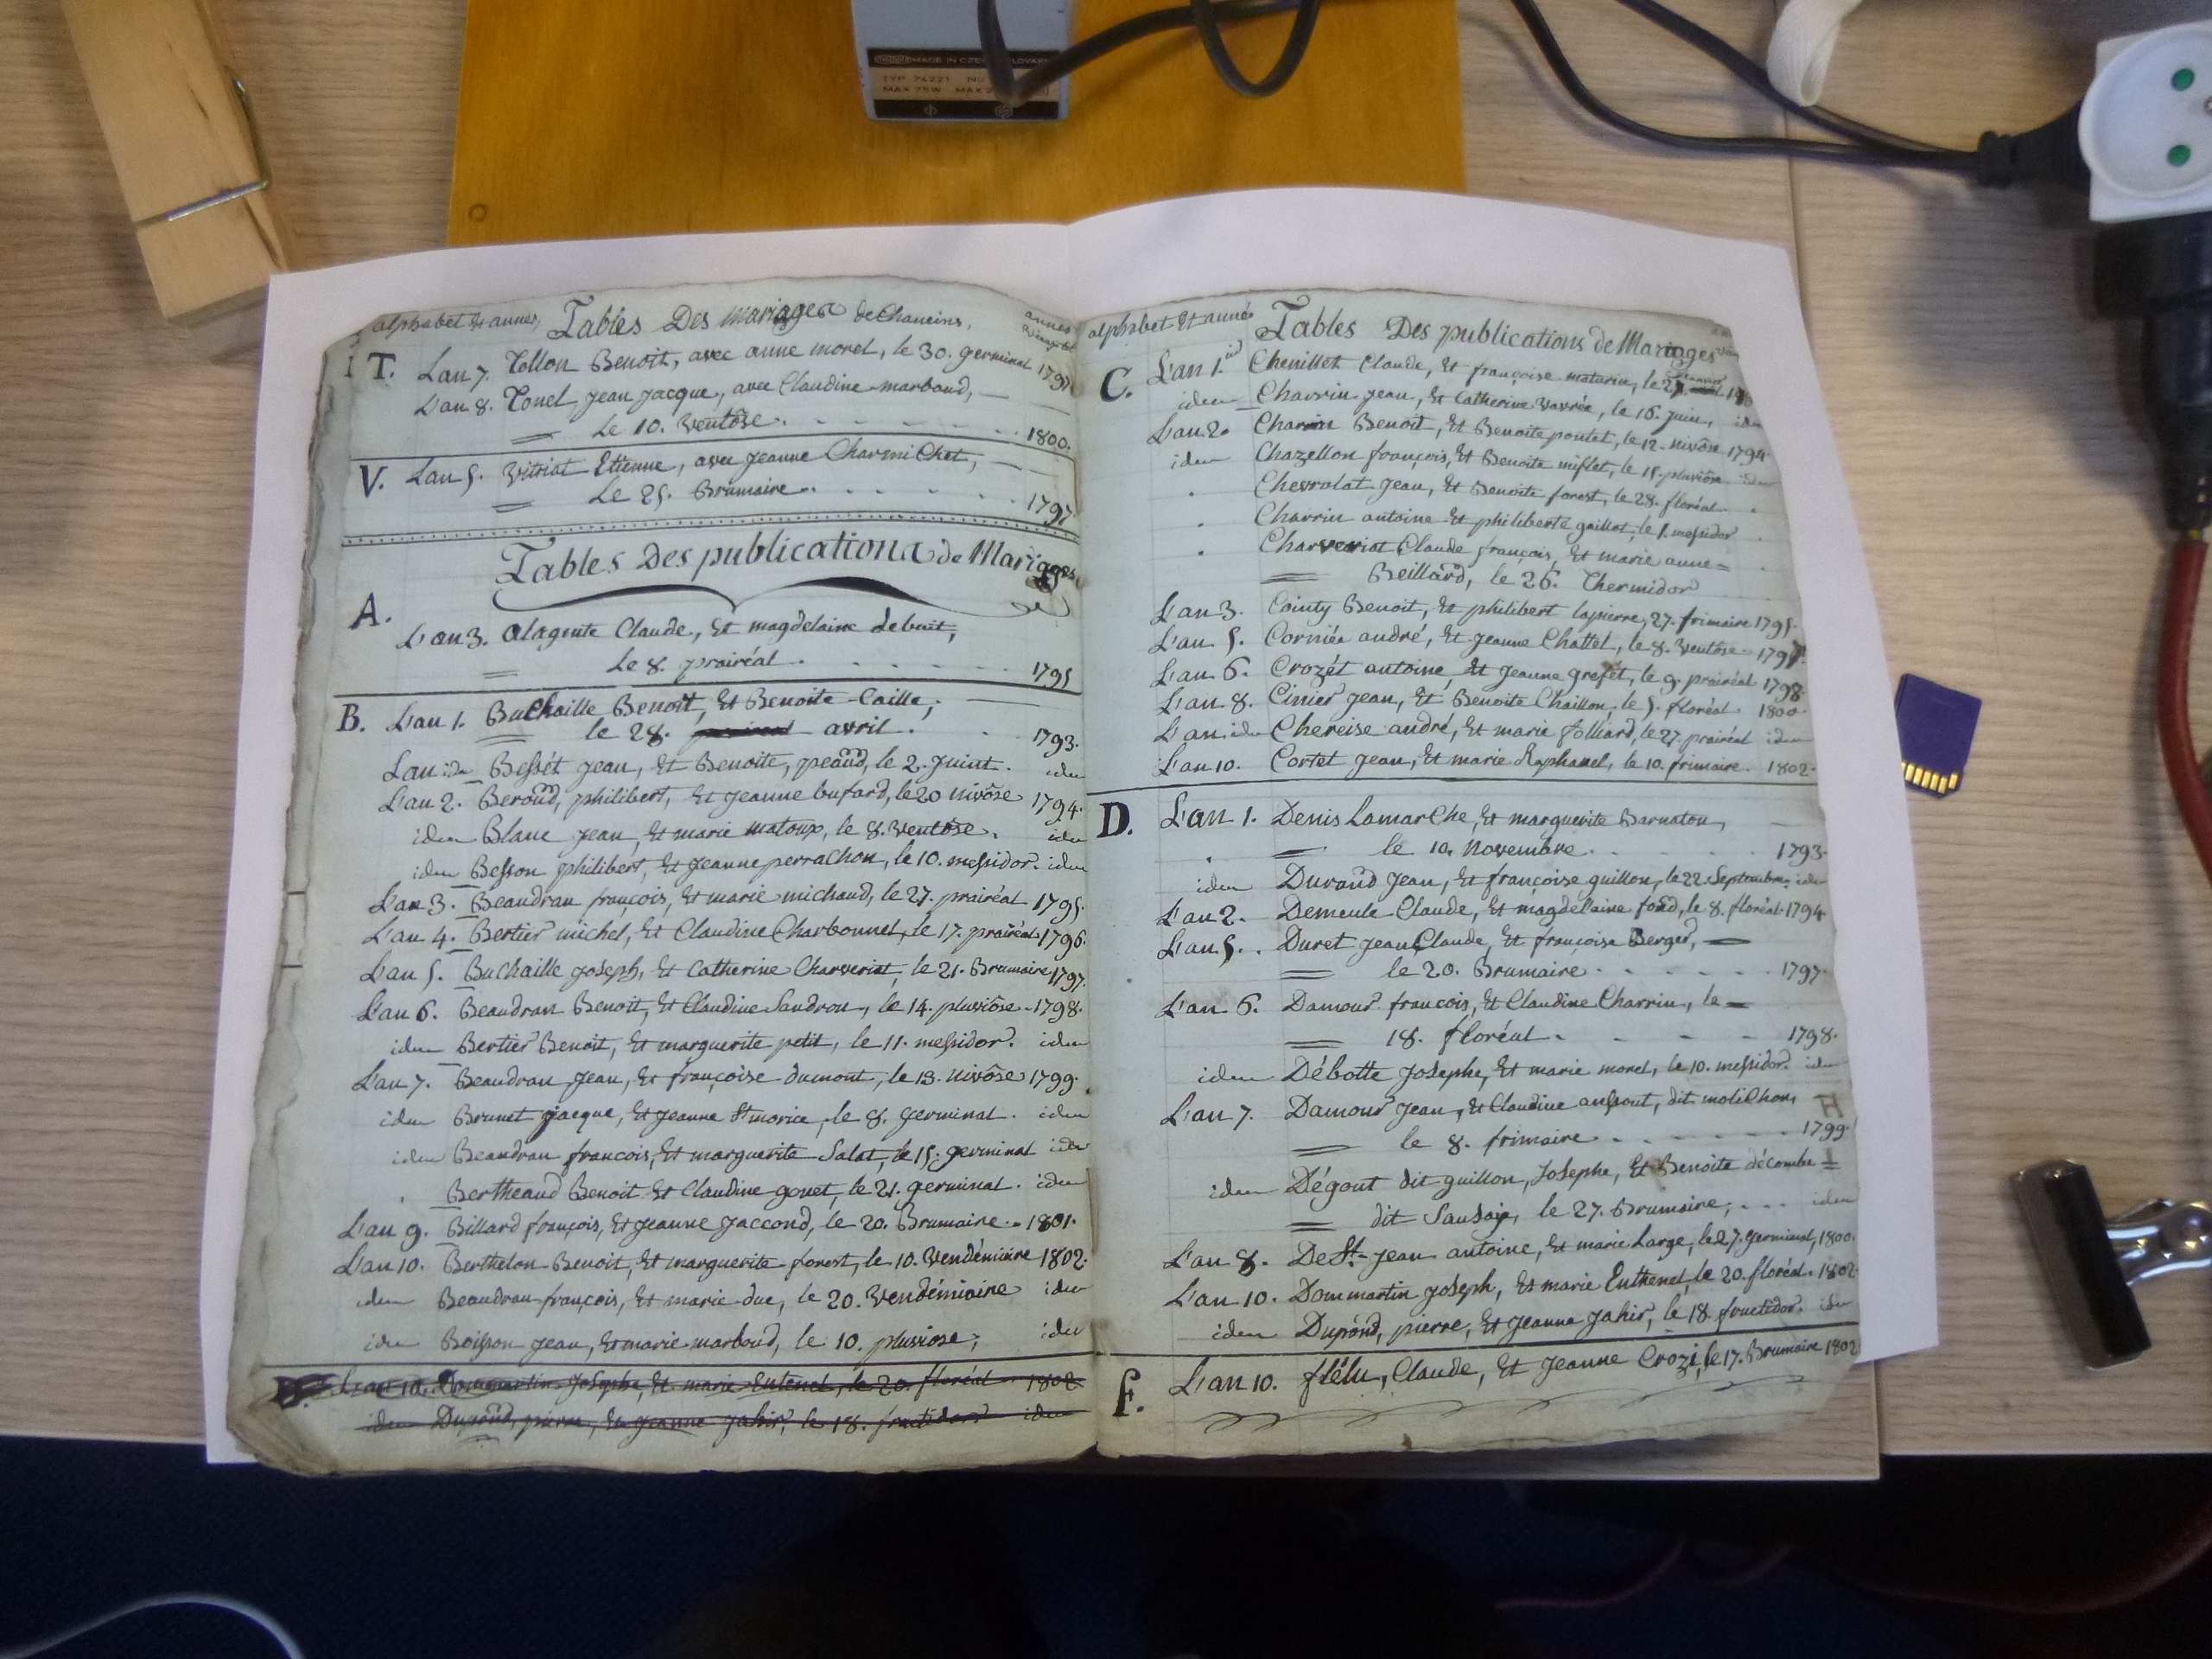 MADE IN CZECHOSLOVAKIA
TYP 74221
MAX 75W MAX
alphabet Et anneé, Tables Des mariages de Chaneins,
T. L'an 7. Tollon Benoit, avec anne morel, le 30. germinal
L'an 8. Tonel, jean jacque, avec Claudine marboud,
Le 10. Ventôse. 1800.
V. L'an 5. Vitriat Etienne, avec jeanne Charmi Chet,
Le 25. Brumaire. 1797
Tables Des publications de Mariages
A.
L'an 3. alagente Claude, Et magdelaine debuit,
Le 8. prairéal. 1795
B. L'an 1. Buchaille Benoit, Et Benoite Caille,
le 28. avril. 1793.
L'an idem Bessét jean, Et Benoite, peaud, le 2. juint. idem
L'an 2. Beroud, philibert, Et jeanne bufard, le 20 nivôse 1794.
idem Blanc jean, Et marie matoux, le 8. ventôse. idem
idem Besson philibert, Et jeanne perrachon, le 10. messidor. idem
L'an 3. Beaudran françois, Et marie michaud, le 27. prairéal 1795.
L'an 4. Bertier michel, Et Claudine Charbonnet, le 17. prairéal 1796.
L'an 5. Buchaille joseph, Et Catherine Charveriat, le 21. Brumaire 1797.
L'an 6. Beaudran Benoit, Et Claudine Sandron, le 14. pluviôse. 1798.
idem Bertier Benoit, Et marguerite petit, le 11. messidor. idem
L'an 7. Beaudran jean, Et françoise dumont, le 13. nivôse 1799.
idem Brunet jacque, Et jeanne St morice, le 8. germinal. idem
idem Beaudran françois, Et marguerite Salat, le 15. germinal idem
. Bertheaud Benoit Et Claudine gonet, le 21. germinal. idem
L'an 9. Billard françois, Et jeanne jaccond, le 20. Brumaire. 1801.
L'an 10. Berthelon Benoit, Et marguerite forest, le 10. Vendémiaire 1802.
idem Beaudran françois, Et marie duc, le 20. Vendémiaire idem
idem Boisson jean, Et marie marboud, le 10. pluviose, idem
D. L'an 10. Dommartin Josephe, Et marie Entenel, le 20. floréal 1802
idem Dupond, pierre, Et jeanne jahir, le 18. fructidor idem
alphabet Et anneé Tables Des publications de Mariages
C. L'an 1. Chenillet Claude, Et françoise maturin,
idem Charrin jean, Et Catherine Vavrée, le 16. juin,
L'an 2. Charrin Benoit, Et Benoite pontet, le 12. nivôse 1794.
idem Chazellon françois, Et Benoite miflet, le 15. pluviôse idem
. Chevralat jean, Et Benoite forest, le 28. floréal.
. Charrin antoine Et philiberte gaillot, le 1. messidor
. Charveriat Claude françois, Et marie anne=
Beillard, le 26. Thermidor
L'an 3. Cointy Benoit, Et philibert lapierre, 27. frimaire 1795.
L'an 5. Cornier andré, Et jeanne Chattel, le 8. Ventôse 1797.
L'an 6. Crozét antoine, Et jeanne grefet, le 9. prairéal 1798.
L'an 8. Cinier jean, Et Benoite Chaillon, le 5. floréal. 1800.
L'an idem Chereise andré, Et marie folliard, le 27. prairéal idem
L'an 10. Cortet jean, Et marie Raphanel, le 10. frimaire. 1802.
D. L'an 1. Denis Lamarche, Et marguerite Barnatou,
. le 10. Novembre. 1793.
idem Durand jean, Et françoise guillon, le 22. Septembre, idem
L'an 2. Demeule Claude, Et magdelaine fond, le 8. floréal. 1794
L'an 5. Duret jean Claude, Et françoise Berger,
le 20. Brumaire. 1797.
L'an 6. Damour françois, Et Claudine Charrin, le
18. floréal. 1798.
idem Débotte Josephe, Et marie morel, le 10. messidor. idem
L'an 7. Damour jean, Et Claudine dit motichon,
le 8. frimaire. 1799.
idem Dégout dit guillon, Josephe, Et Benoite décombe=
dit le 27. Brumaire, idem
L'an 8. De St. jean antoine, Et marie Large, le 27. germinal, 1800.
L'an 10. Dommartin joseph, Et marie Enthenel, le 20. floréal. 1802.
idem Dupond, pierre, Et jeanne jahir, le 18. fructidor. idem
f. L'an 10. flélu, Claude, Et jeanne Crozi, le 17. Brumaire 1802